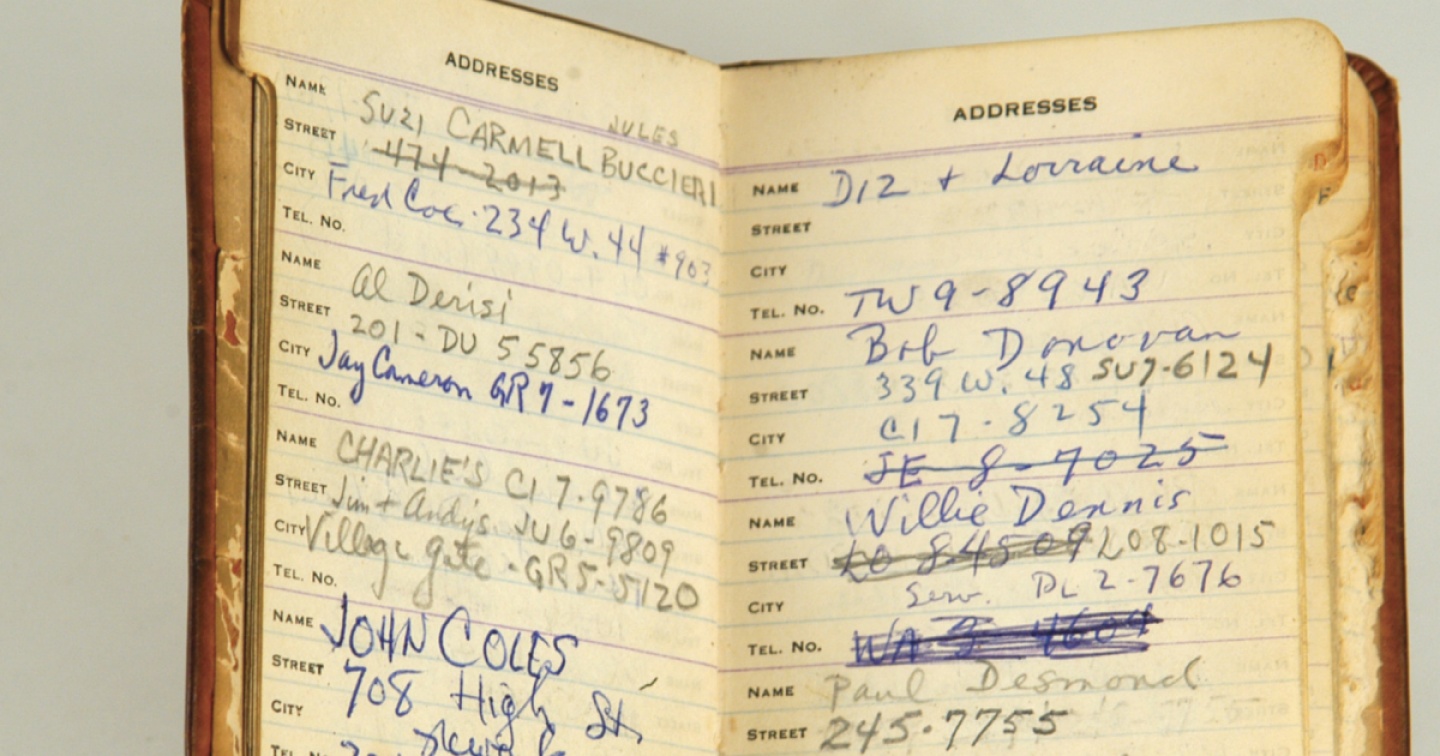 ADDRESSES
NAME SUZI CARMELL JULES BUCCIERI
STREET 474-2013
CITY Fred Coe. 234 W. 44 #903
TEL. NO.
NAME Al Derisi
STREET 201 - DU 55856
CITY Jay Cameron GR 7-1673
TEL. NO.
NAME CHARLIE'S CI 7-9786
STREET Jim + Andy's. JU 6-9809
CITY Village gate - GR5-5120
TEL. NO.
NAME JOHN COLES
STREET 708 High St,
CITY
TEL. NO.
ADDRESSES
NAME DIZ + Lorraine
STREET
CITY
TEL. NO. TW 9-8943
NAME Bob Donovan
STREET 339 W. 48 SU7-6124
CITY CI 7-8254
TEL. NO. JE 8-7025
NAME Willie Dennis
STREET LO 8-4509 LO8-1015
CITY Serv. PL 2-7676
TEL. NO. WA 8-4604
NAME Paul Desmond
STREET 245-7755